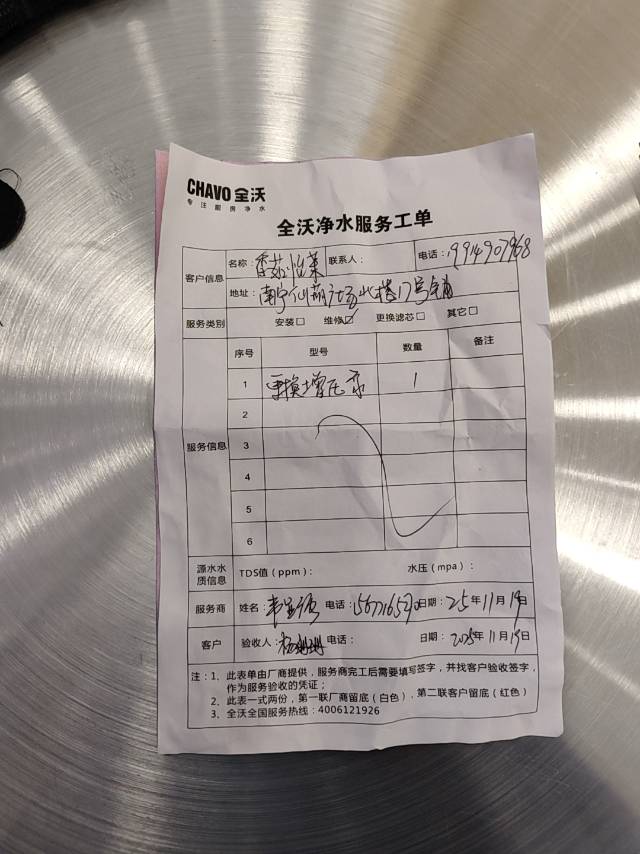 CHAVO 全沃
专注厨房净水
全沃净水服务工单
客户信息
名称：香菇怡莱 联系人： 电话：19914907968
地址：南宁仙葫广场北楼17号铺
服务类别 安装□ 维修☑ 更换滤芯□ 其它□
服务信息
序号 型号 数量 备注
1 更换增压泵 1
2
3
4
5
6
源水水质信息 TDS值（ppm）： 水压（mpa）：
服务商 姓名： 电话： 日期：25年11月19日
客户 验收人： 电话： 日期：2025年11月19日
注：1、此表单由厂商提供，服务商完工后需要填写签字，并找客户验收签字，
作为服务验收的凭证；
2、此表一式两份，第一联厂商留底（白色），第二联客户留底（红色）
3、全沃全国服务热线：4006121926